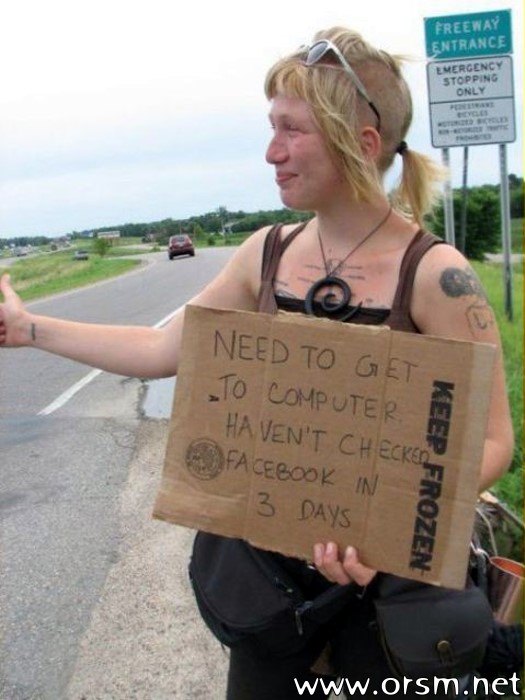 FREEWAY
ENTRANCE
EMERGENCY
STOPPING
ONLY
PEDESTRIANS
BICYCLES
MOTORIZED BICYCLES
NON-MOTORIZED TRAFFIC
PROHIBITED
NEED TO GET
TO COMPUTER.
HAVEN'T CHECKED
FACEBOOK IN
3 DAYS
KEEP FROZEN
www.orsm.net